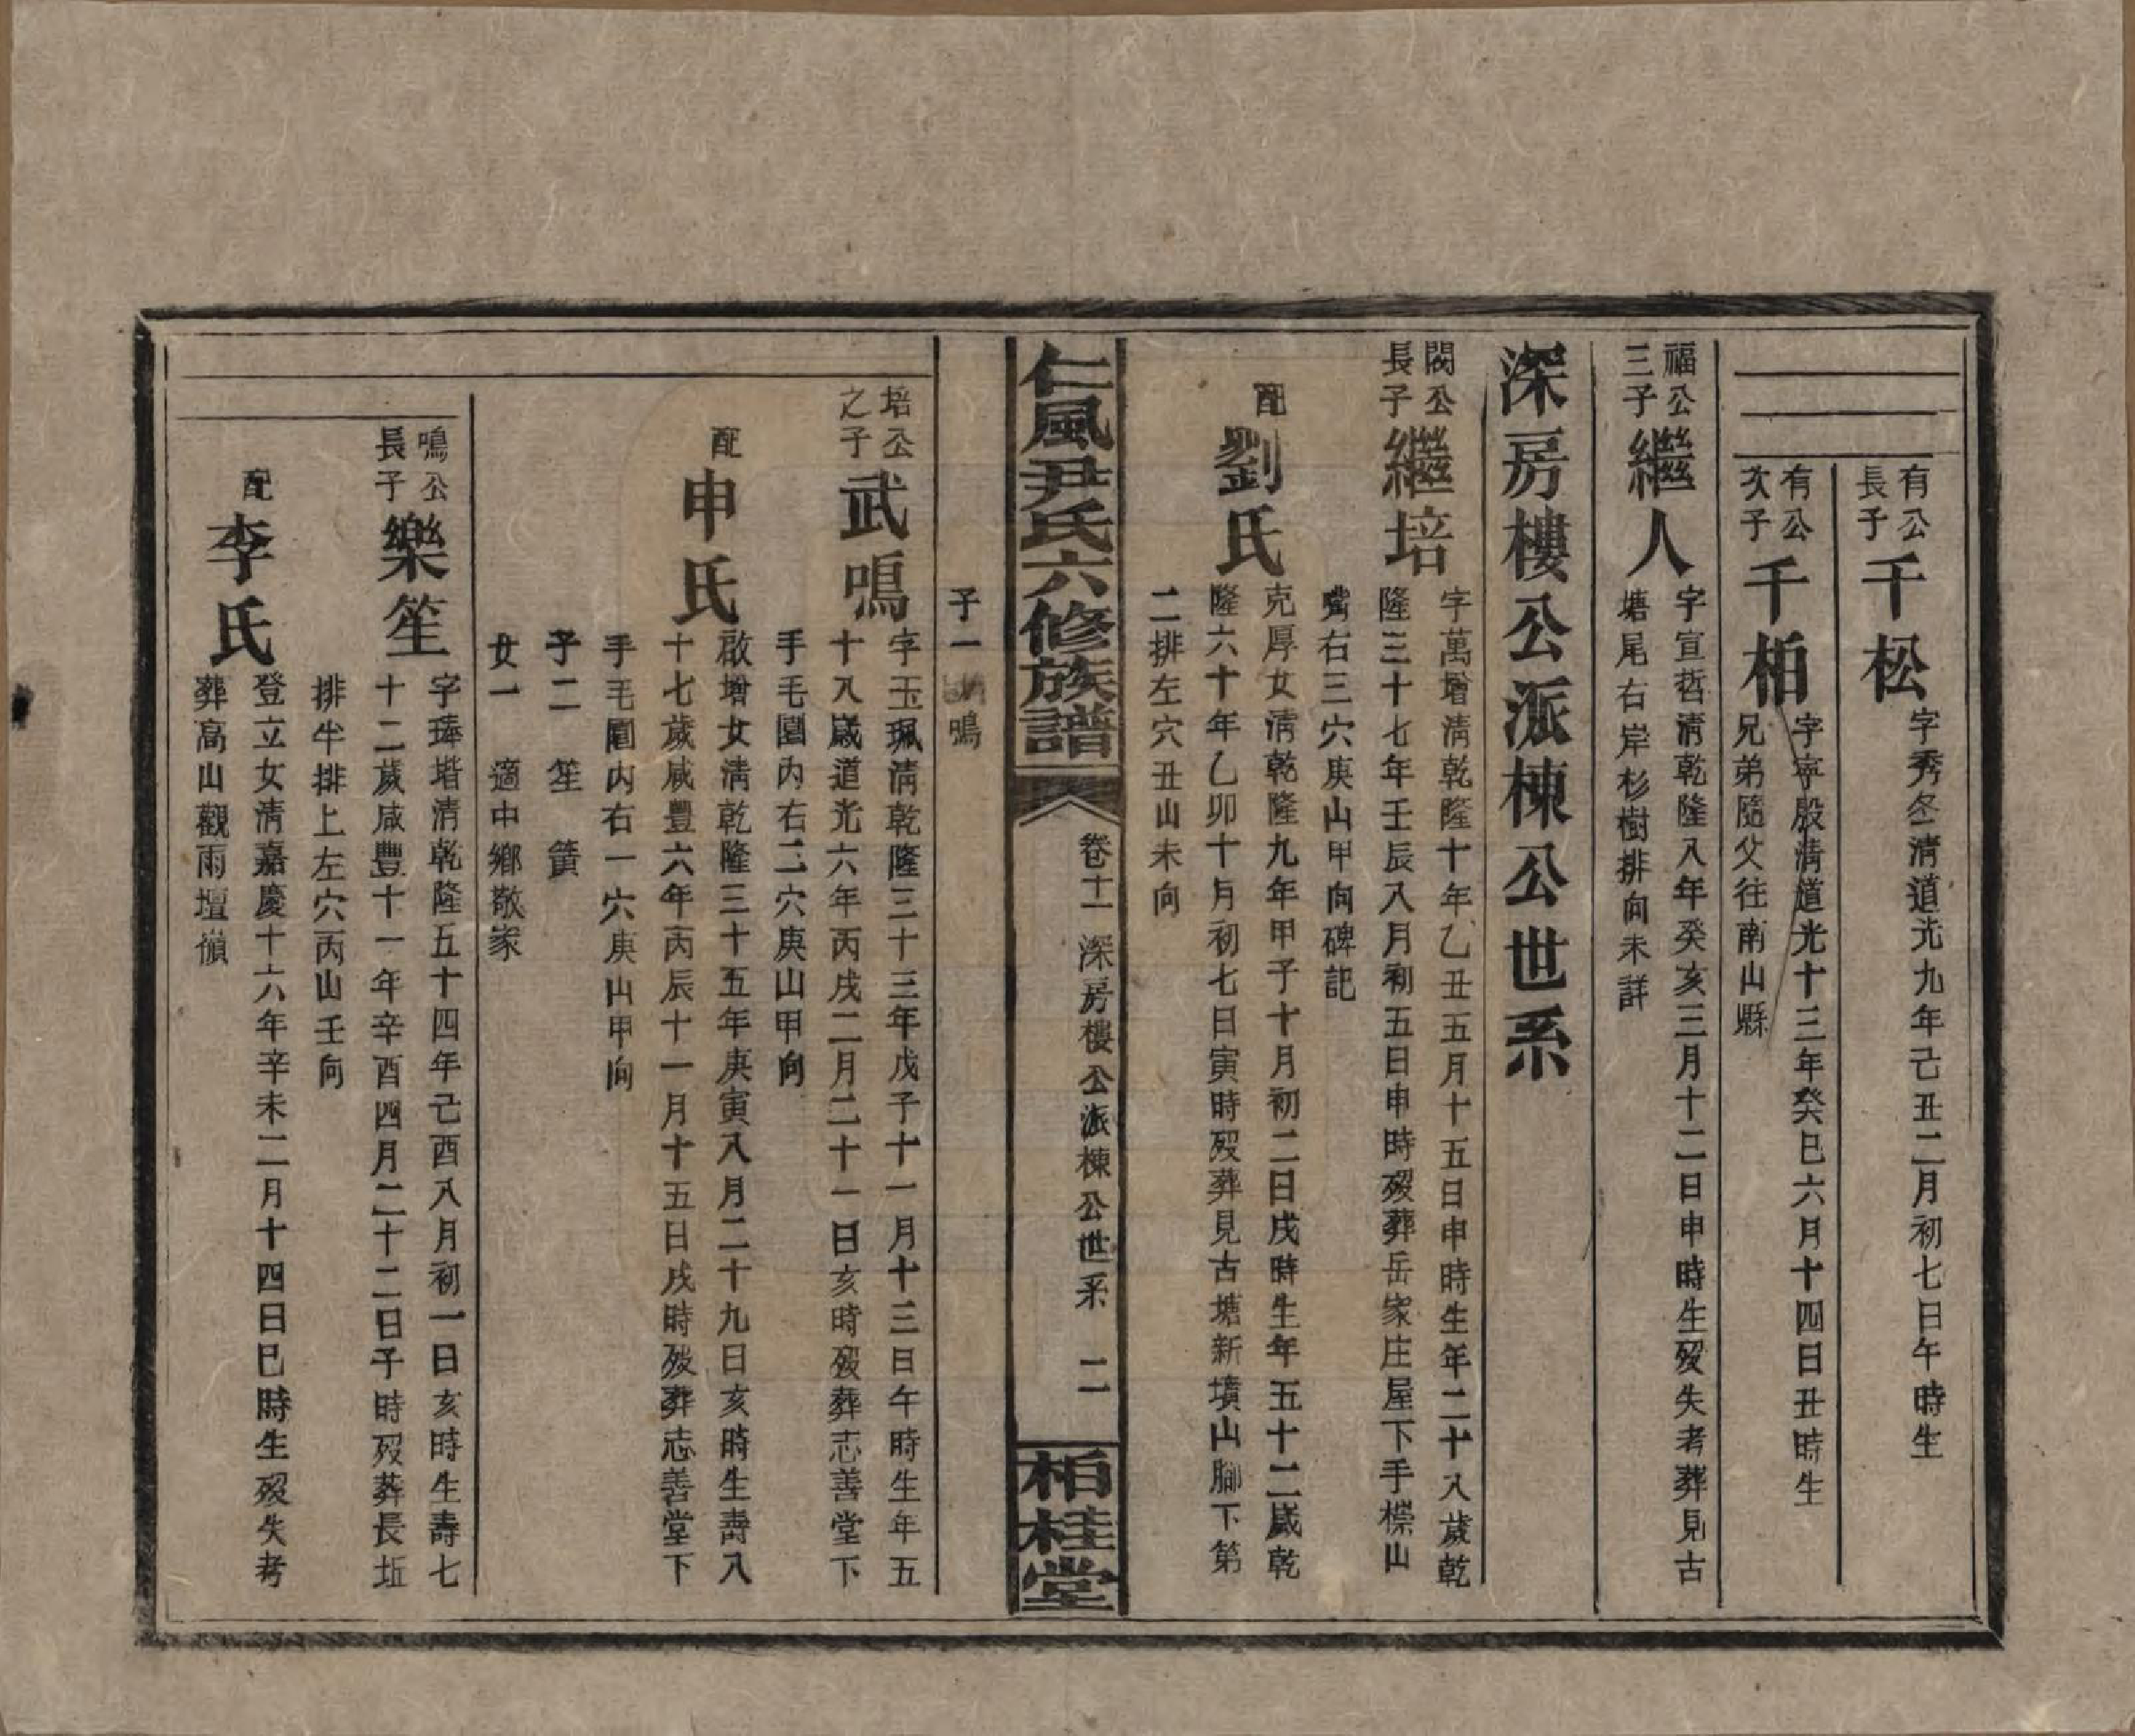 有公
長子
千松
字秀冬清道光九年己丑二月初七日午時生
有公
次子
千栢
字寧殷清道光十三年癸巳六月十四日丑時生
兄弟隨父往南山縣
福公
三子
繼人
字宣哲清乾隆八年癸亥三月十二日申時生歿失考葬見古
塘尾右岸杉樹排向未詳
深房樓公派棟公世系
閣公
長子
繼培
字萬增清乾隆十年乙丑五月十五日申時生年二十八歲乾
隆三十七年壬辰八月初五日申時歿葬岳家庄屋下手櫟山
嘴右三穴庚山甲向碑記
配
劉氏
克厚女清乾隆九年甲子十月初二日戌時生年五十二歲乾
隆六十年乙卯十月初七日寅時歿葬見古塘新墳山腳下第
二排左穴丑山未向
仁風尹氏六修族譜
卷十一 深房樓公派棟公世系 二
栢桂堂
子一 鳴
培公
之子
武鳴
字玉珮清乾隆三十三年戊子十一月十三日午時生年五
十八歲道光六年丙戌二月二十一日亥時歿葬志善堂下
手毛園內右二穴庚山甲向
配
申氏
啟增女清乾隆三十五年庚寅八月二十九日亥時生壽八
十七歲咸豐六年丙辰十一月十五日戌時歿葬志善堂下
手毛園內右一穴庚山甲向
子二 笙 簧
女一 適中鄉敬家
鳴公
長子
樂笙
字琫堦清乾隆五十四年己酉八月初一日亥時生壽七
十二歲咸豐十一年辛酉四月二十二日子時歿葬長坵
排半排上左穴丙山壬向
配
李氏
登立女清嘉慶十六年辛未二月十四日巳時生歿失考
葬高山觀雨壇嵿